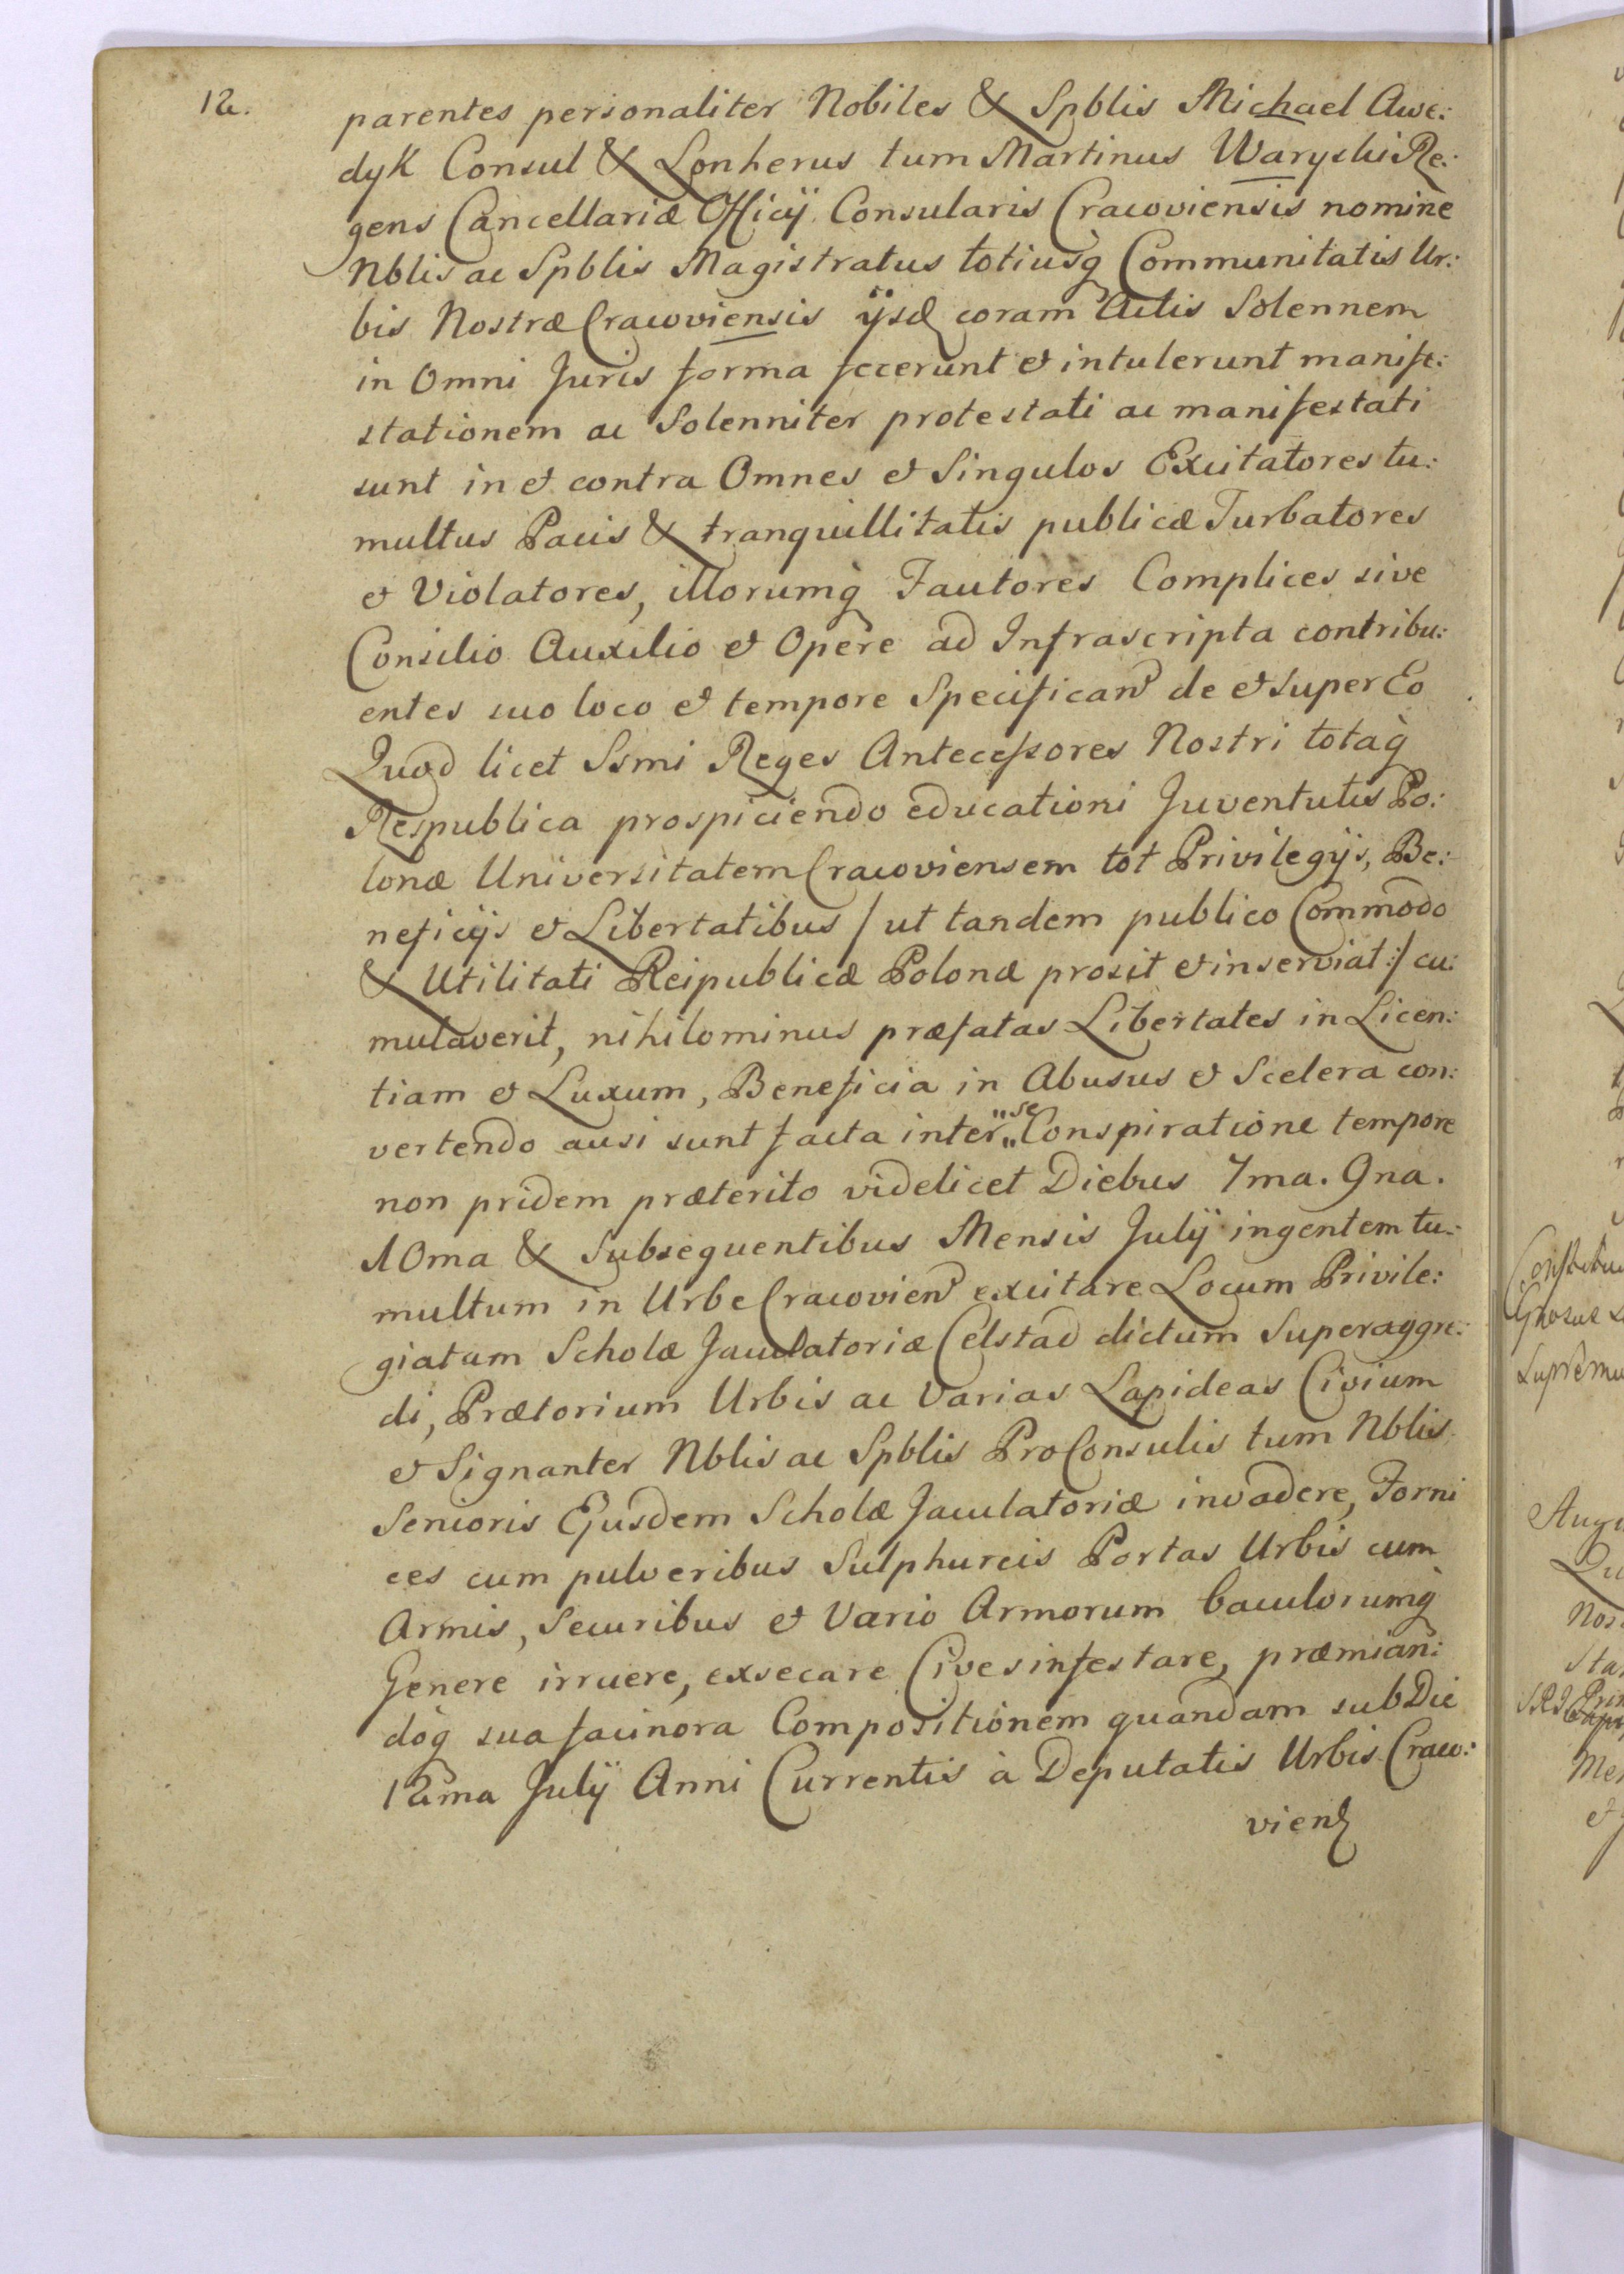 12.
parentes personaliter Nobiles & Spblis Michael Awe:
dyk Consul & Lonherus tum Martinus Waryski Re:
gens Cancellariæ Officij Consularis Cracoviensis nomine
Nblis ac Spblis Magistratus totiusq̀ Communitatis Ur:
bis Nostræ Cracoviensis ijsd coram Actis Solennem
in Omni Juris forma fecerunt et intulerunt manife:
stationem ac Solenniter protestati ac manifestati
sunt in et contra Omnes et Singulos Excitatores tu:
multus Pacis & tranquillitatis publicæ Turbatores
et Violatores, illorumq̀ Fautores Complices sive
Consilio Auxilio et Opere ad Infrascripta contribu:
entes suo loco et tempore Specifican de et super Eo
Quod licet Ssmi Reges Antecessores Nostri totaq̀
Respublica prospiciendo educationi Juventutis Po:
lonæ Universitatem Cracoviensem tot Privilegijs, Be:
neficijs et Libertatibus / ut tandem publico Commodo
& Utilitati Reipublicæ Polonæ prosit et inserviat :/ cu:
mulaverit, nihilominus præfatas Libertates in Licen:
tiam et Luxum, Beneficia in Abusus et Scelera con:
vertendo ausi sunt facta inter "se" Conspiratione tempore
non pridem præterito videlicet Diebus 7ma. 9na.
10ma & Subsequentibus Mensis Julij ingentem tu:
multum in Urbe Cracovien excitare Locum Privile:
giatum Scholæ Jaculatoriæ Celstad dictum Superaggre:
di, Prætorium Urbis ac Varias Lapideas Civium
et Signanter Nblis ac Spblis ProConsulis tum Nblis
Senioris Ejusdem Scholæ Jaculatoriæ invadere, Forni
ces cum pulveribus Sulphureis Portas Urbis cum
Armis, Securibus et Vario Armorum baculorumq̀
Genere irruere, exsecare Cives infestare, præmian:
doq̀ sua facinora Compositionem quandam sub Die
12ma Julij Anni Currentis à Deputatis Urbis Craco:
vien